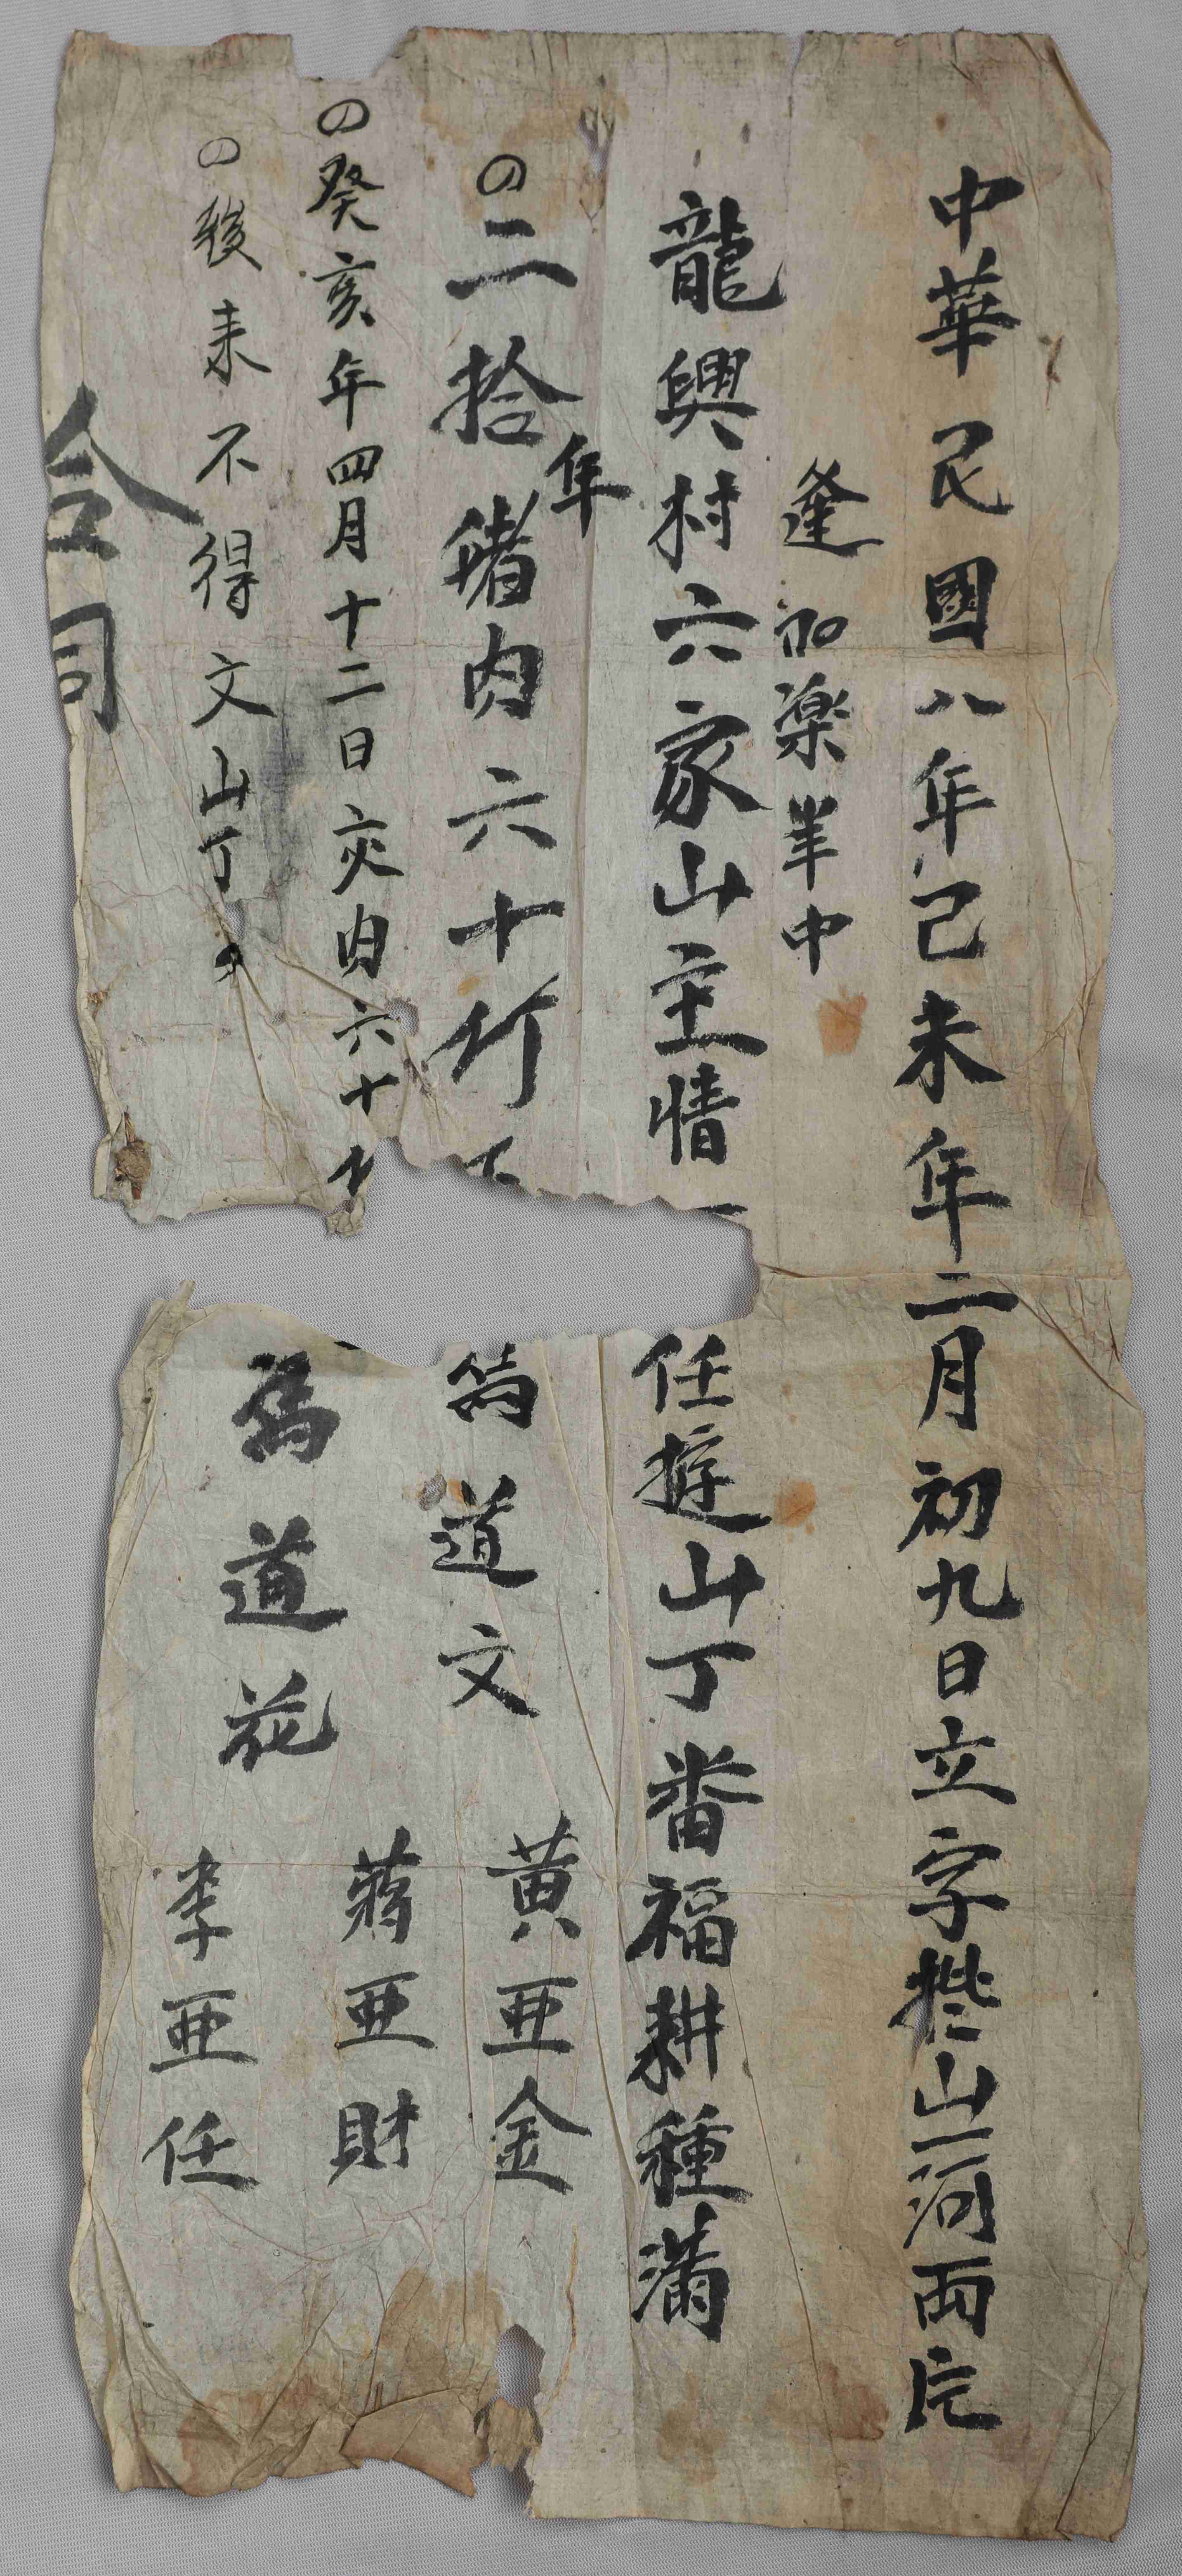 中華民國八年己未年二月初九日立字批山一河兩斤
逢加楽羊中
龍興村六家山主情一
任遊山丁畨福耕種滿
二拾年猪肉六十斤
癸亥年四月十二日交肉六十
後未不得文山丁
合同
為道文
為道花
黃亜金
蔣亜財
李亜任